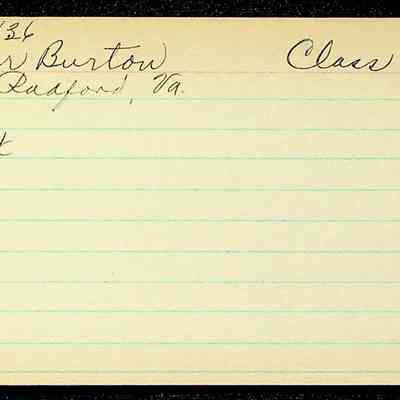 636
r Burton Class
Radford, Va.
t